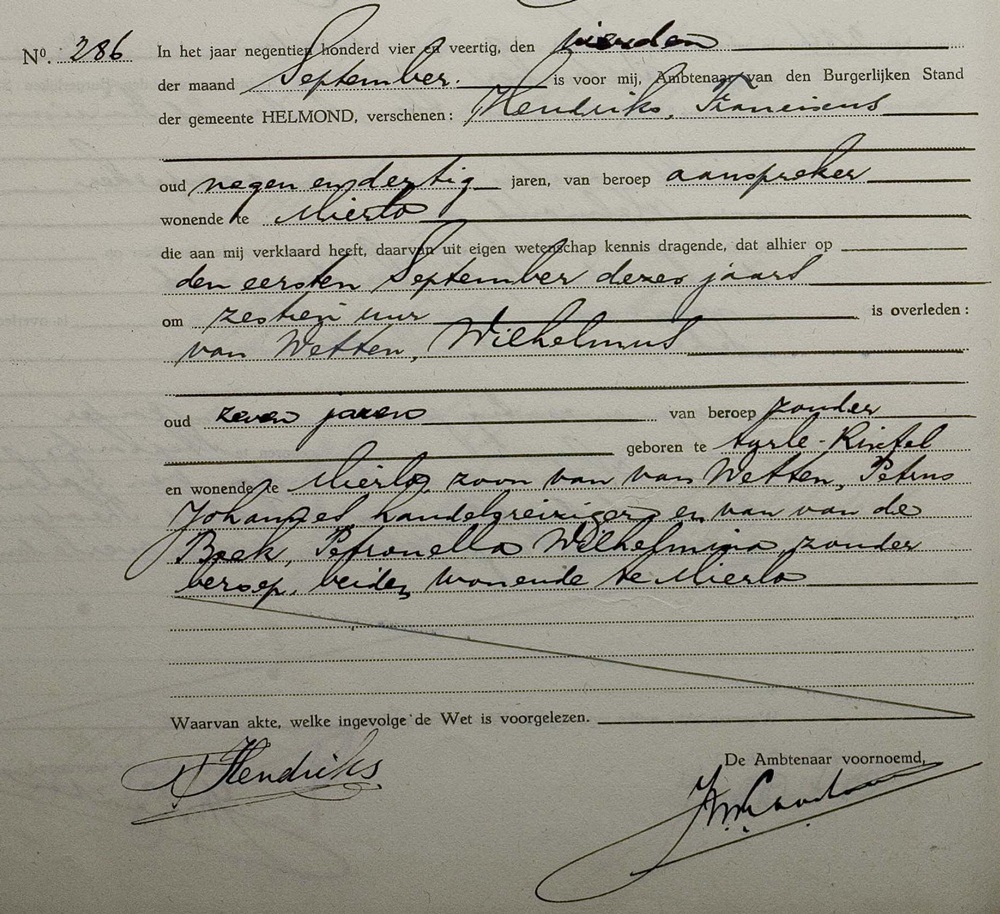 Nº. 286 In het jaar negentien honderd vier en veertig, den vierden
der maand September. is voor mij, Ambtenaar van den Burgerlijken Stand
der gemeente HELMOND, verschenen: Hendriks, Franciscus
oud negen en dertig jaren, van beroep aanspreker
wonende te Mierlo
die aan mij verklaard heeft, daarvan uit eigen wetenschap kennis dragende, dat alhier op
den eersten September dezes jaars
om zestien uur is overleden:
van Wetten, Wilhelmus
oud zeven jaren van beroep zonder
geboren te Aarle-Rixtel
en wonende te Mierlo, zoon van van Wetten, Petrus
Johannes, handelsreiziger, en van van de
Beek, Petronella Wilhelmina, zonder
beroep, beiden wonende te Mierlo
Waarvan akte, welke ingevolge de Wet is voorgelezen.
De Ambtenaar voornoemd,
Hendriks